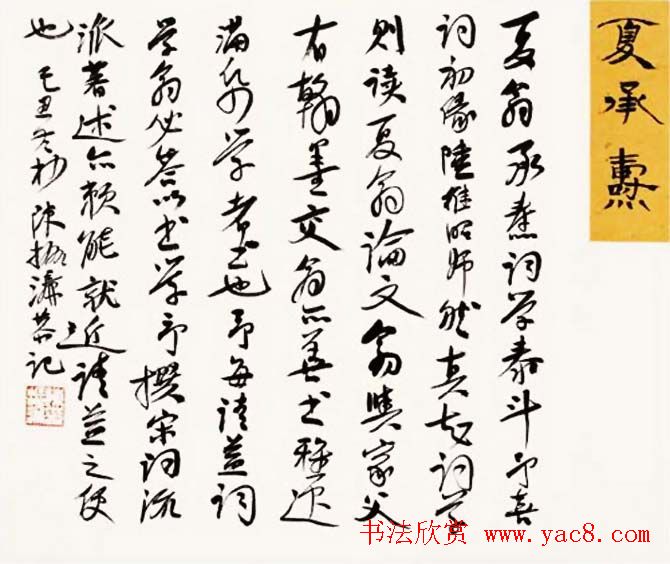 夏承燾
夏翁承焘词学泰斗予喜
词初缘陆维钊师然真知词学
则读夏翁论文翁與家父
有翰墨交翁亦善书雅逸
满纸学者书也予每请益词
学翁必答以书学予撰宋词流
派著述亦赖能就近请益之便
也 己丑冬杪 陈振濂恭记
书法欣赏 www.yac8.com